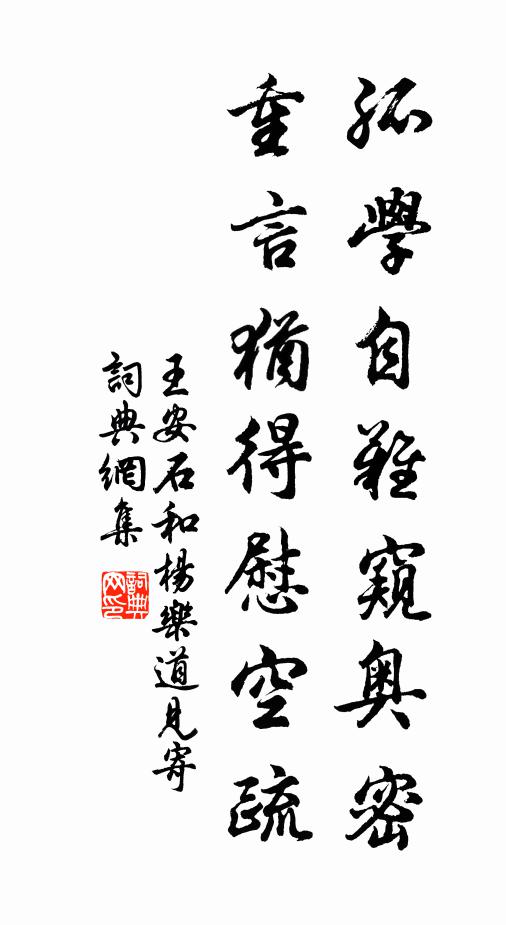 孤學自難窺奥密
重言猶得慰空疏
王安石和楊樂道見寄
詞典網集
詞典网印